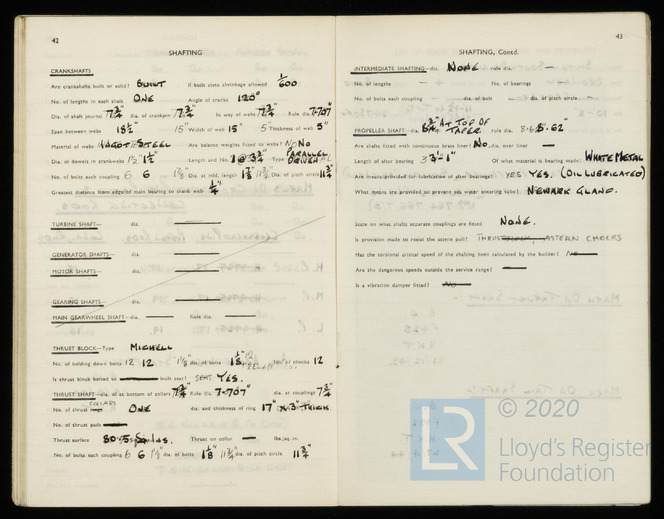 42
SHAFTING
CRANKSHAFTS
Are crankshafts built or solid? BUILT If built state shrinkage allowed 1/600
No. of lengths in each shaft ONE Angle of cranks 120°
Dia. of shaft journal 7 3/4" dia. of crankpin 7 3/4" In way of webs 7 3/4" Rule dia. 7.707"
Span between webs 18 1/2" 15" Width of web 15" 5" Thickness of web 5"
Material of webs INGOT STEEL Are balance weights fitted to webs? No NO
Dia. of dowels in crankwebs 1 1/2" 1 1/2" Length and No. PARALLEL DRIVEN
No. of bolts each coupling 6 6 Dia. at mid. length 1 1/8" Dia. of pitch circle 11 3/4"
Greatest distance from edge of main bearing to crank web 1/4"
TURBINE SHAFT— dia.
GENERATOR SHAFTS—
MOTOR SHAFT—
GEARING SHAFTS—
MAIN GEARWHEEL SHAFT—dia. Rule dia.
THRUST BLOCK—Type MICHELL
No. of holding down bolts 12 12 dia. of bolts 1 1/8" No. of chocks 12
Is thrust block bolted to built seat? SEAT YES.
THRUST SHAFT—dia. at bottom of collars 7 3/4" Rule dia. 7.707" dia. at couplings 7 3/4"
No. of thrust COLLARS ONE dia. and thickness of ring 17" X 3" THICK
No. of thrust pads
Thrust surface Thrust on collar lbs./sq. in.
No. of bolts each coupling 6 6 1 1/8" dia. of bolts 1 1/8" 11 3/4" dia. of pitch circle 11 3/4"
43
SHAFTING, Contd.
INTERMEDIATE SHAFTING—dia. NONE rule dia. —
No. of lengths — No. of bearings
No. of bolts each coupling — dia. of bolt — dia. of pitch circle —
PROPELLER SHAFT—dia. AT TOP OF TAPER rule dia. 8.62"
Are shafts fitted with continuous brass liner? No dia. over liner —
Length of after bearing 3'-1" Of what material is bearing made? WHITE METAL
Are means provided for lubrication of after bearings? YES YES. (OIL LUBRICATED)
What means are provided to prevent sea water entering tube? NEWARK GLAND.
State on what shafts separate couplings are fitted NONE.
Is provision made to resist the astern pull? THRUST ASTERN CHOCKS
Has the torsional critical speed of the shafting been calculated by the builder? No
Are the dangerous speeds outside the service range?
Is a vibration damper fitted? No
LR
© 2020
Lloyd's Register
Foundation